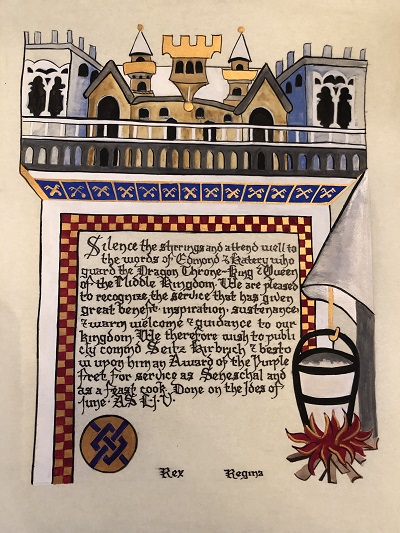 Silence the stirrings and attend well to
the words of Edmond & Kateryn who
guard the Dragon Throne-King & Queen
of the Middle Kingdom. We are pleased
to recognize the service that has given
great benefit, inspiration, sustenance
& warm welcome & guidance to our
kingdom. We therefore wish to publi
cly comend Seitz Kirbych & besto
w upon him an Award of the Purple
Fret for service as Seneschal and
as a feast cook. Done on the Ides of
June. AS
Rex Regina